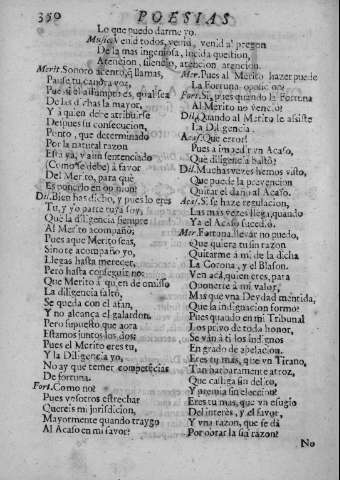 350
POESIAS
Lo que puedo darme yo.
Music. Venid todos, venid, venid al pregon
De la mas ingeniosa, lucida question,
Atencion, silencio, atencion, atencion.
Merit. Sonoro acento, que llamas,
Pause tu canora voz,
Pues si el assumpto es, qual sea
De las dichas la mayor,
Y à quien debe atribuirse
Despues su consecucion,
Punto, que determinado
Por la natural razon
Està ya, y aun sentenciado
(Como se debe) à favor
Del Merito, para què
Es ponerlo en opinion?
Dil. Bien has dicho, y pues lo eres
Tu, y yo parte tuya soy,
Que la diligencia siempre
Al Merito acompañò;
Pues aque Merito seas,
Sino te acompaño yo,
Llegas hasta merecer,
Pero hasta conseguir no:
Que Merito à quien de omisso
La diligencia faltò,
Se queda con el afan,
Y no alcança el galardon.
Pero supuesto que aora
Estamos juntos los dos:
Pues el Merito eres tu,
Y la Diligencia yo,
No ay que temer competencias
De fortuna.
Fort. Como no?
Pues vosotros estrechar
Quereis mi jurisdicion,
Mayormente quando traygo
Al Acaso en mi favor?
Mer. Pues al Merito hazer puede
La Fortuna oposicion?
Fort. Si, pues quando la Fortuna
Al Merito no venciò?
Dil. Quando al Merito le assiste
La Diligencia.
Acas. Què error!
Pues a impedir vn Acaso,
Què diligencia bastò?
Dil. Muchas vezes hemos visto,
Que puede la prevencion
Quitar el daño al Acaso.
Acas. Si se haze regulacion,
Las mas vezes llega, quando
Ya el Acaso sucediò.
Mer. Fortuna, llevar no puedo,
Que quiera tu sin razon
Quitarme à mi de la dicha
La Corona, y el Blason.
Ven acà, quien eres, para
Oponerte à mi valor,
Mas que vna Deydad mentida,
Que la indignacion formò?
Pues quando en mi Tribunal
Los privo de todo honor,
Se vàn à ti los indignos
En grado de apelacion.
Eres tu mas, que vn Tirano,
Tan barbaramente atroz,
Que castiga sin delito,
Y premia sin eleccion?
Eres tu mas, que vn efugio
Del interès, y el favor,
Y vna razon, que se dà
Por obrar la sin razon?
No